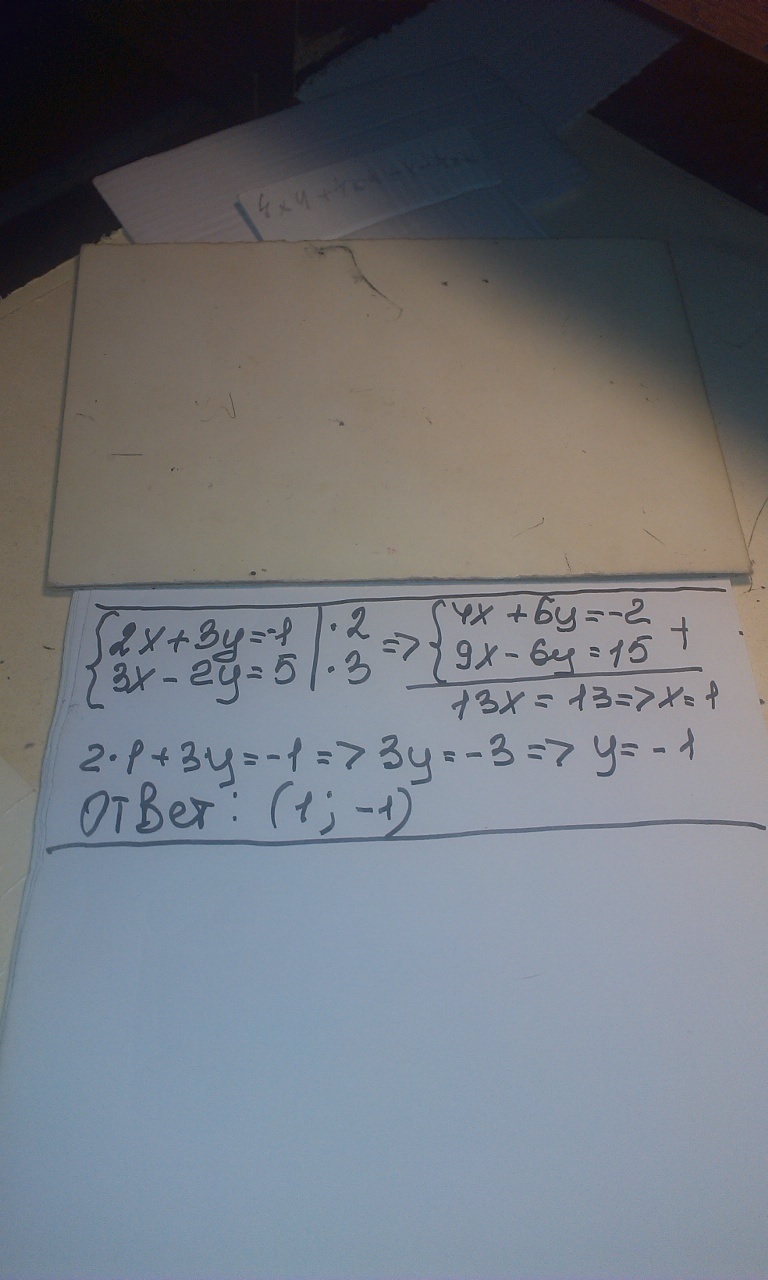 {2x+3y=-1 | ·2 => {4x+6y=-2 +
{3x-2y=5 | ·3 {9x-6y=15
13x=13=>x=1
2·1+3y=-1=>3y=-3=>y=-1
Ответ: (1; -1)